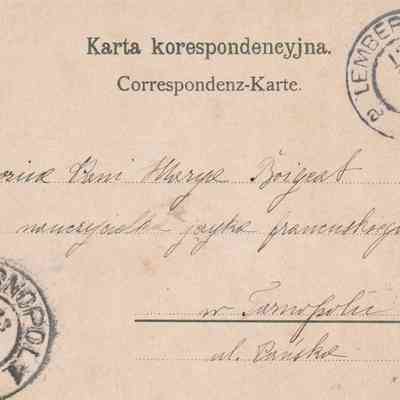 Karta korespondencyjna.
Correspondenz-Karte.
LEMBER
2
Pani Marya Boigeat
nauczycielka języka francuskieg
w Tarnopolu
ul. Pańska
NOPOL